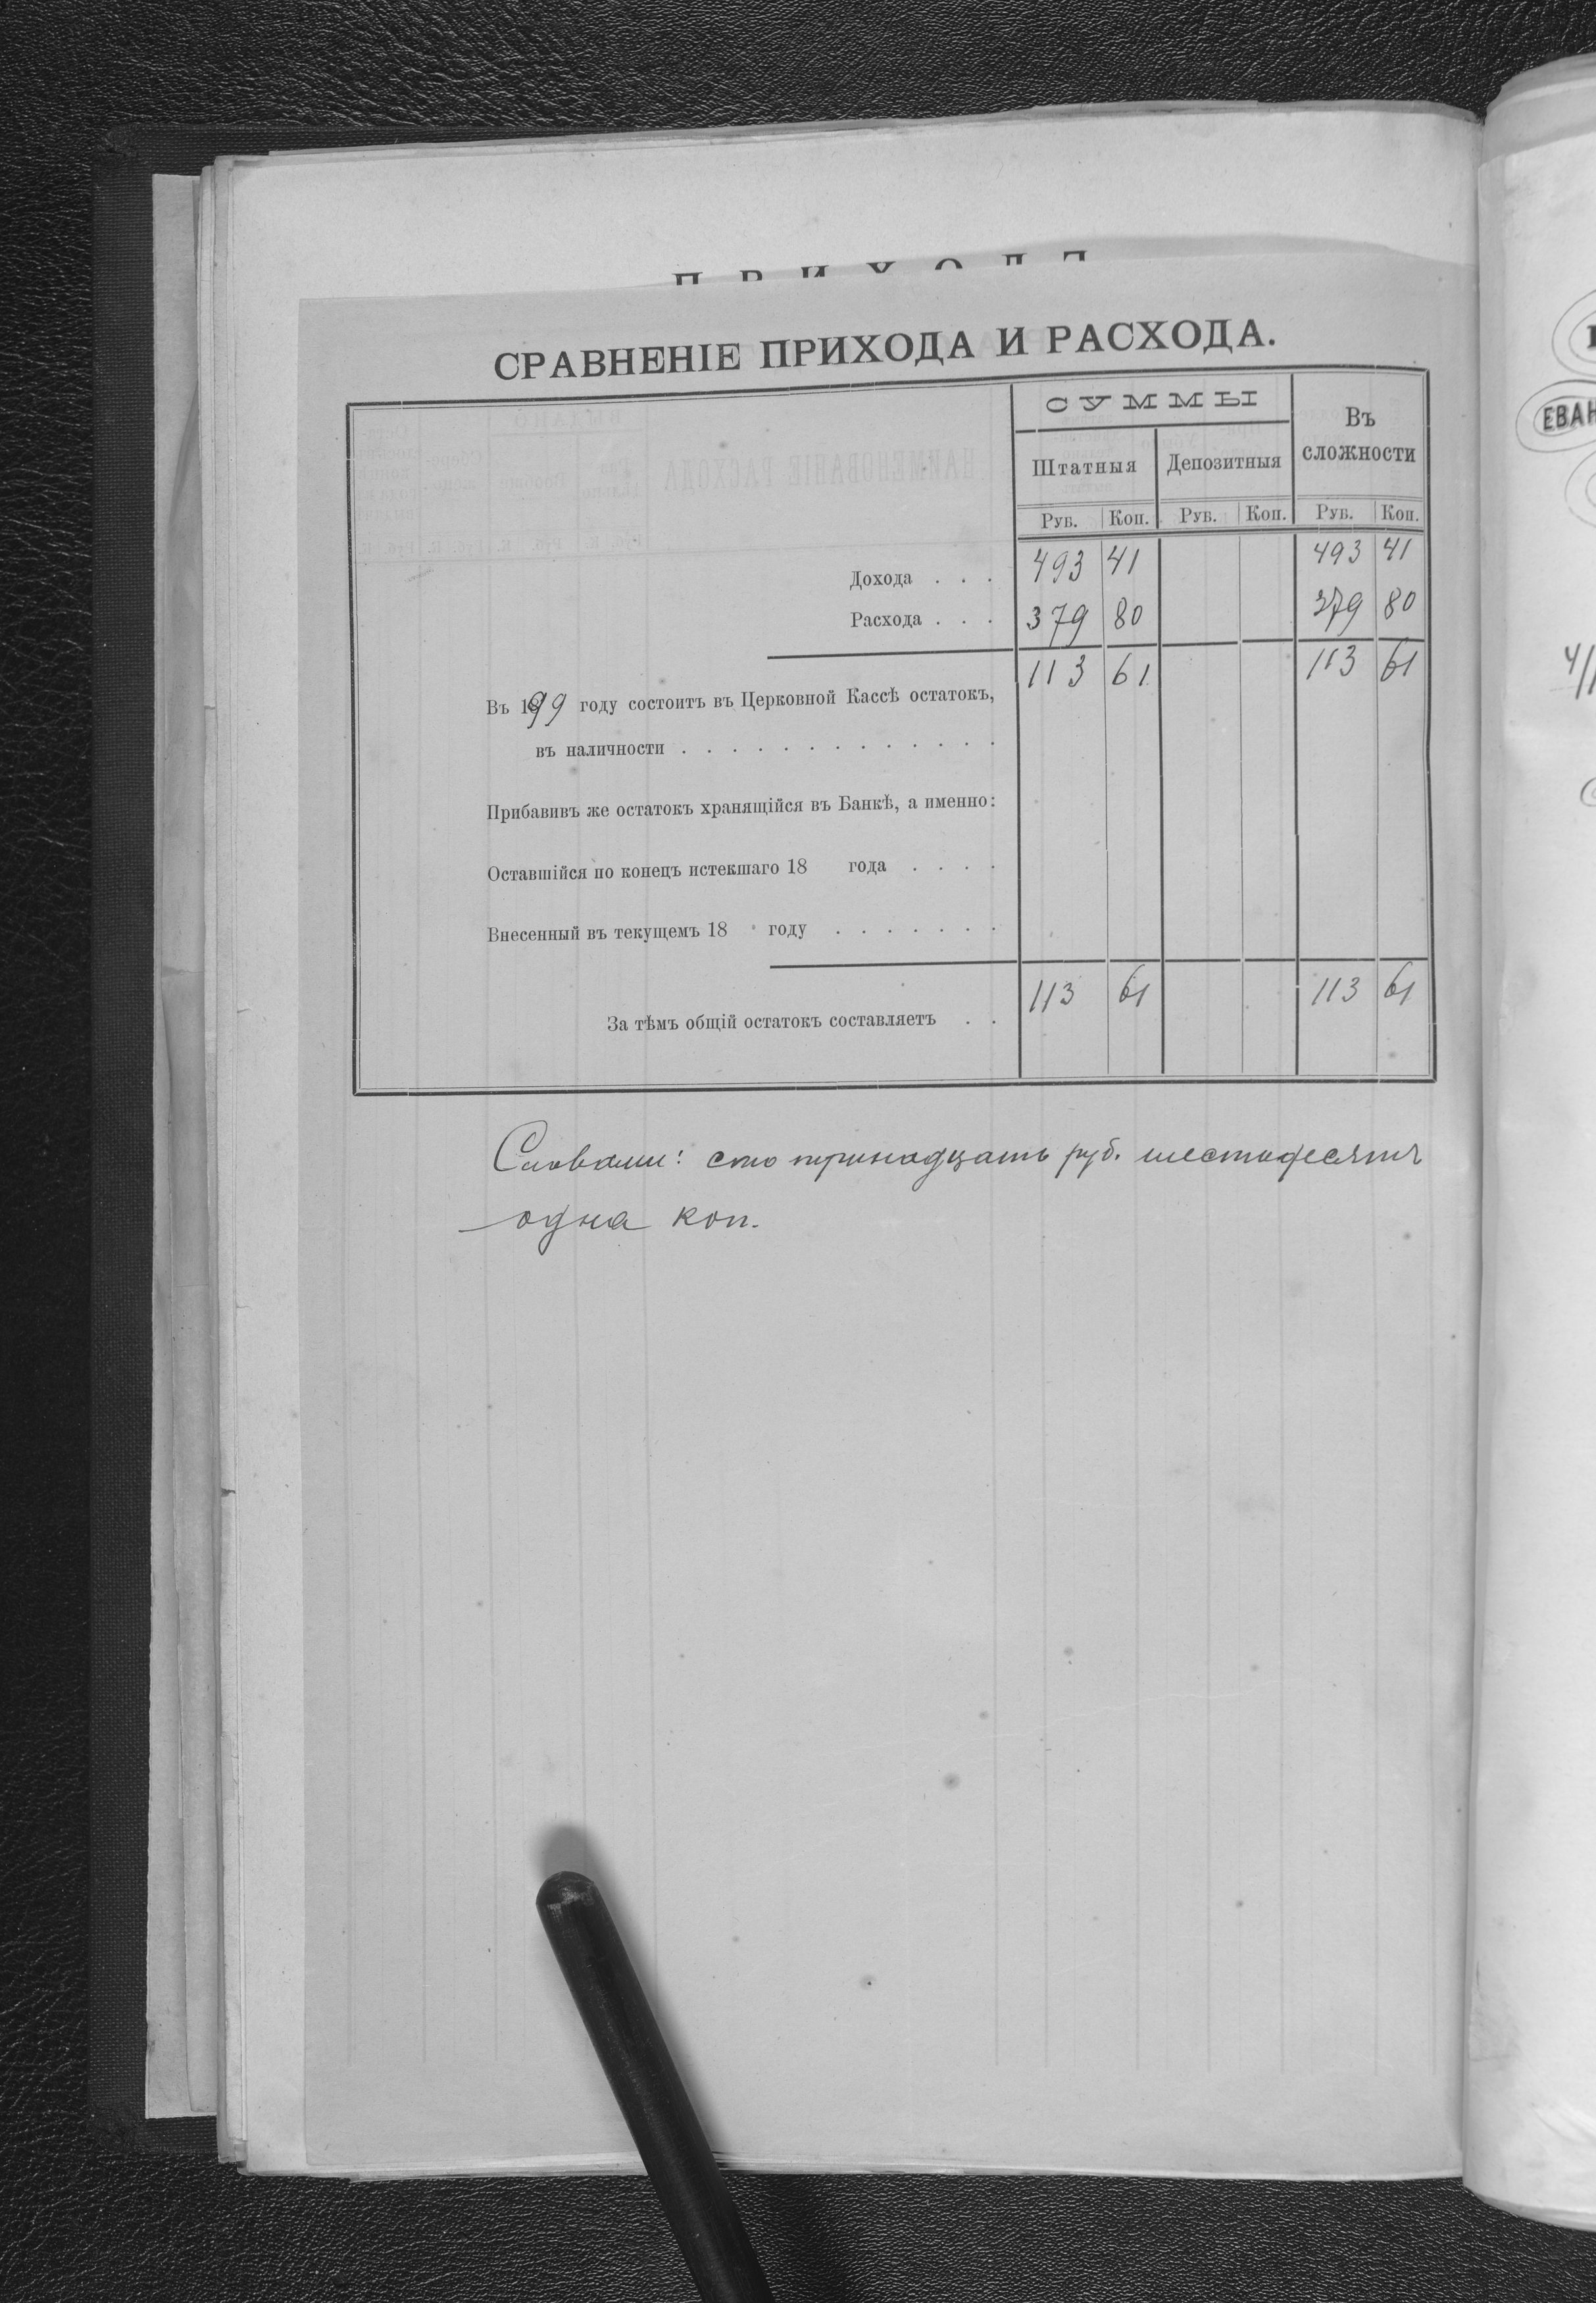 СРАВНЕНІЕ ПРИХОДА И РАСХОДА.
СУММЫ
Въ сложности
Штатныя Депозитныя
Руб. Коп. Руб. Коп. Руб. Коп.
Дохода . . . 493 41 493 41
Расхода . . . 379 80 379 80
113 61 113 61
Въ 1899 году состоитъ въ Церковной Кассѣ остатокъ,
въ наличности . . . . . . . . . . . . .
Прибавивъ же остатокъ хранящійся въ Банкѣ, а именно:
Оставшійся по конецъ истекшаго 18 года . . . .
Внесенный въ текущемъ 18 году . . . . . . .
За тѣмъ общій остатокъ составляетъ . . 113 61 113 61
Словами: сто тринадцать руб. шестьдесятъ
одна коп.
ЕВАН